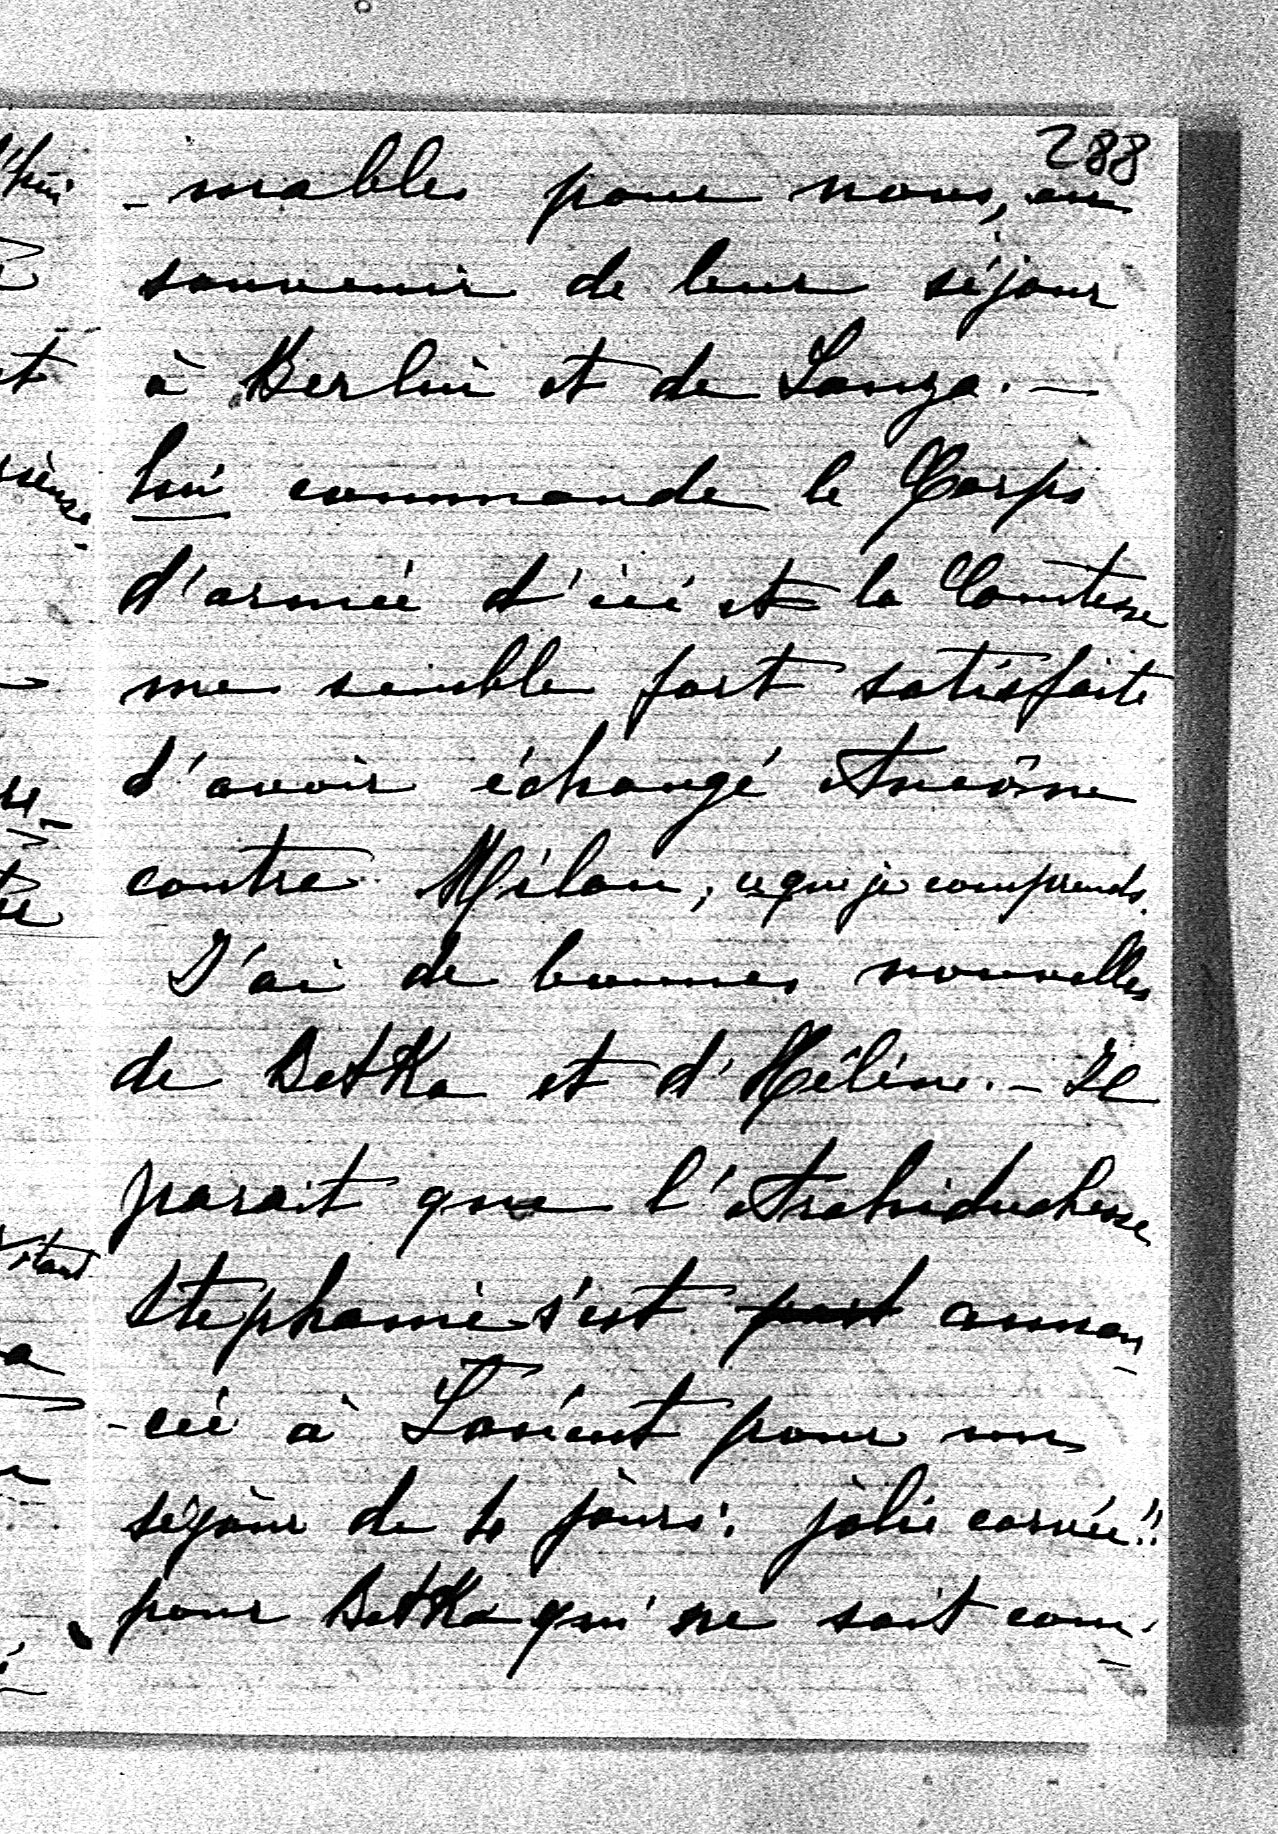 288
-mables pour nous, en
souvenir de leur séjour
à Berlin et de Lanza. —
Lui commande le Corps
d'armée d'ici et la Comtesse
me semble fort satisfaite
d'avoir échangé Ancône
contre Milan, ce que je comprends.
J'ai de bonnes nouvelles
de Betka et d'Hélène. - Il
parait que l'Archiduchesse
Stephanie s'est annon
-cée à Lancut pour un
séjour de 10 jours: jolie corvée!!
pour Betka qui ne sait com-